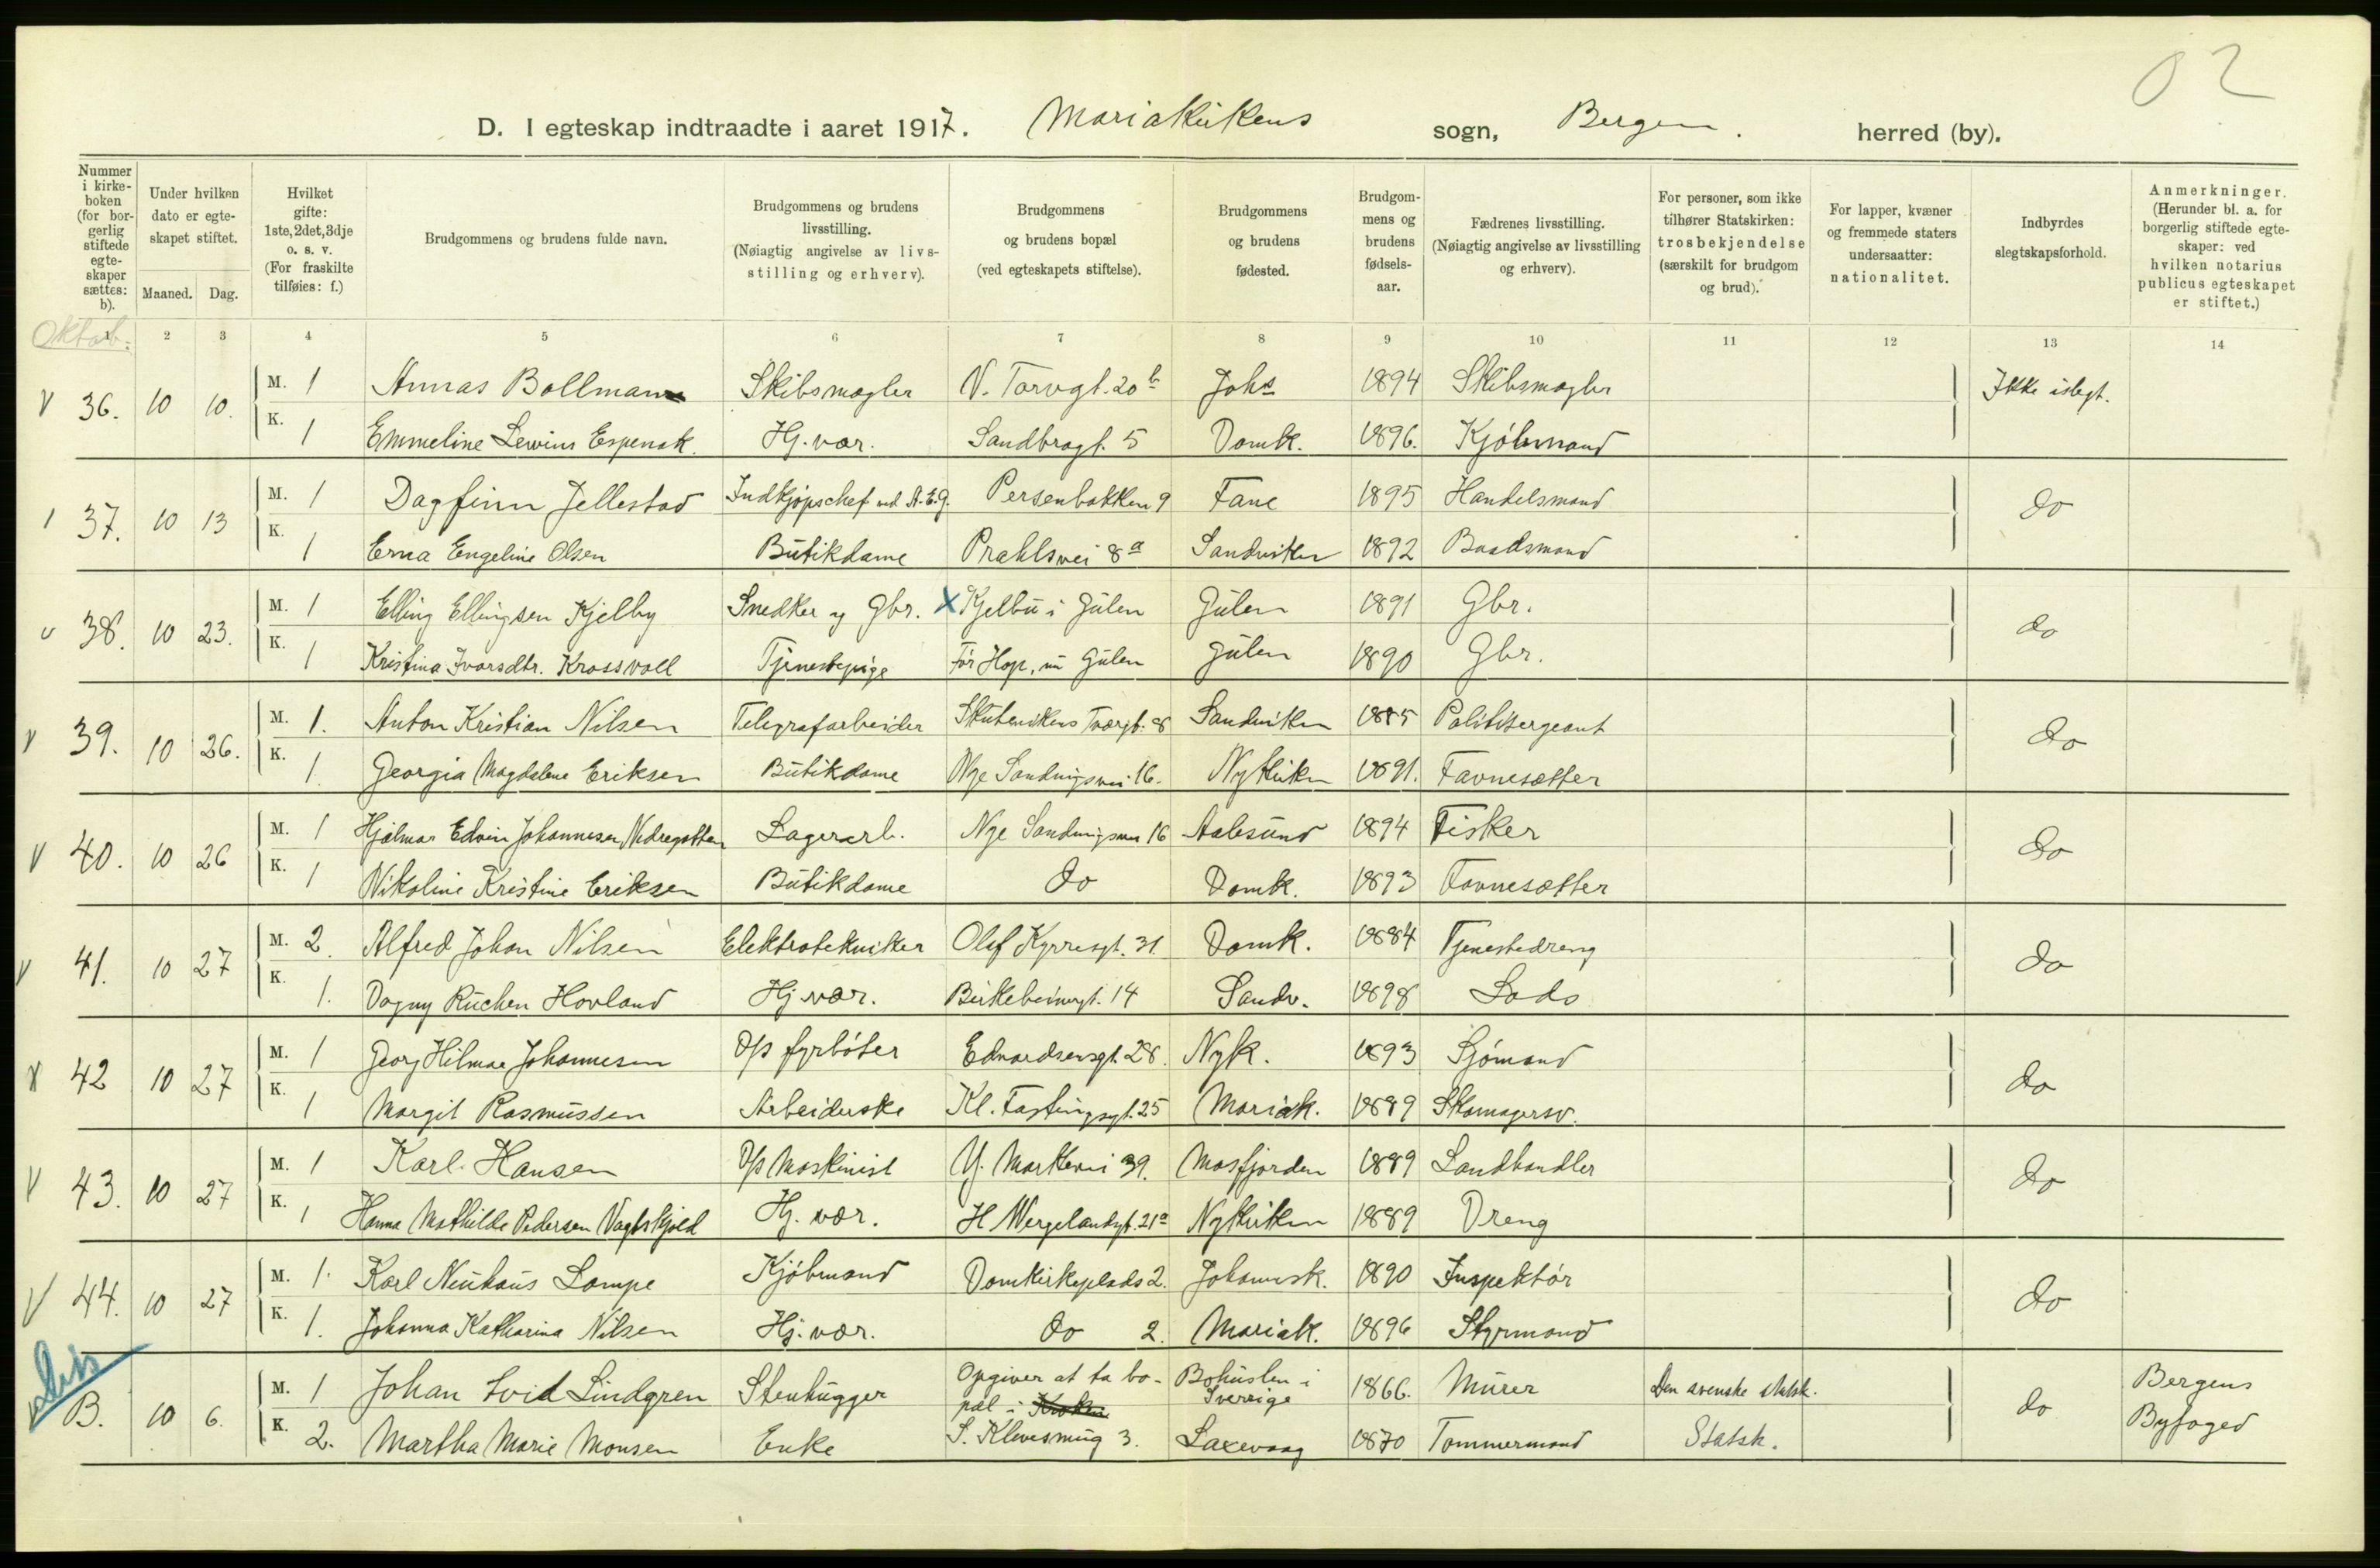 02
D. I egteskap indtraadte i aaret 1917. Mariakirkens sogn, Bergen. herred (by).
Nummer i kirke-boken (for bor-gerlig stiftede egte-skaper sættes: b).
Under hvilken dato er egte-skapet stiftet.
Maaned. Dag.
Hvilket gifte: 1ste, 2det, 3dje o. s. v. (For fraskilte tilføies: f.)
Brudgommens og brudens fulde navn.
Brudgommens og brudens livsstilling. (Nøiagtig angivelse av livs-stilling og erhverv).
Brudgommens og brudens bopæl (ved egteskapets stiftelse).
Brudgommens og brudens fødested.
Brudgom-mens og brudens fødsels-aar.
Fædrenes livsstilling. (Nøiagtig angivelse av livsstilling og erhverv).
For personer, som ikke tilhører Statskirken: trosbekjendelse (særskilt for brudgom og brud).
For lapper, kvæner og fremmede staters undersaatter: nationalitet.
Indbyrdes slegtskapsforhold.
Anmerkninger. (Herunder bl. a. for borgerlig stiftede egte-skaper: ved hvilken notarius publicus egteskapet er stiftet.)
Oktob.
1 2 3 4 5 6 7 8 9 10 11 12 13 14
36. 10 10. M. 1 Annas Bollmann Skibsmægler V. Torvgt. 20 b Johs 1894 Skibsmægler Ikke islegt.
K. 1 Emmeline Lewins Espenak. Hj. vær. Sandbrogt. 5 Domk. 1896. Kjöbmand
37. 10 13 M. 1 Dagfinn Jellestad Indkjøpschef ved A.E.G. Persenbakken 9 Fane 1895 Handelsmand do
K. 1 Erna Engeline Olsen Butikdame Prahlsvei 8a Sandviken 1892 Baadsmand
38. 10 23. M. 1 Elling Ellingsen Kjelby Snedker og Gbr. x Kjelbu i Gulen Gulen 1891 Gbr. do
K. 1 Kristina Ivarsdtr. Krossvoll Tjenestepige Før Hop, nu Gulen Gulen 1890 Gbr.
39. 10 26. M. 1. Anton Kristian Nilsen Telegrafarbeider Skutevikens Tværgt. 8 Sandviken 1885 Politisergeant do
K. 1. Georgia Magdalene Eriksen Butikdame Nye Sandvigsvei 16. Nykirken 1891. Favnesætter
40. 10 26 M. 1 Hjalmar Edvin Johannesen Nedregotten Lagerarb. Nye Sandvigsvei 16 Aalesund 1894 Fisker do
K. 1 Nikoline Kristine Eriksen Butikdame do Domk. 1893 Favnesætter
41. 10 27 M. 2. Alfred Johan Nilsen Elektrotekniker Olaf Kyrresgt. 31. Domk. 1884 Tjenestedreng do
K. 1. Dagny Ruchen Hovland Hj. vær. Birkebeinergt. 14 Sandv. 1898 Lods
42 10 27 M. 1 Georg Hilmar Johannesen D/s fyrböter Edvardsensgt. 28. Nyk. 1893 Sjömand do
K. 1 Margit Rasmussen Arbeiderske Kl. Fastingsgt. 25 Mariak. 1889 Skomagersv.
43. 10 27 M. 1 Karl Hansen D/s Maskinist Y. Markevei 39. Masfjorden 1889 Landhandler do
K. 1 Hanna Mathilde Pedersen Vagtskjold Hj. vær. H. Wergelandsgt. 21a Nykirken 1889 Dreng
44. 10 27 M. 1. Karl Neuhaus Lampe Kjöbmand Domkirkeplads 2. Johannesk. 1890 Inspektör do
K. 1. Johanna Katharina Nilsen Hj. vær. do 2. Mariak. 1896 Styrmand
B. 10 6. M. 1 Johan Lindgren Stenhugger Opgiver at ta bo-
pæl i Bohuslen i Sverrige 1866. Murer Den svenske statsk. do Bergens
K. 2. Martha Marie Monsen Enke S. Klevesmug 3. Laxevaag 1870 Tømmermand Statsk. Byfoged